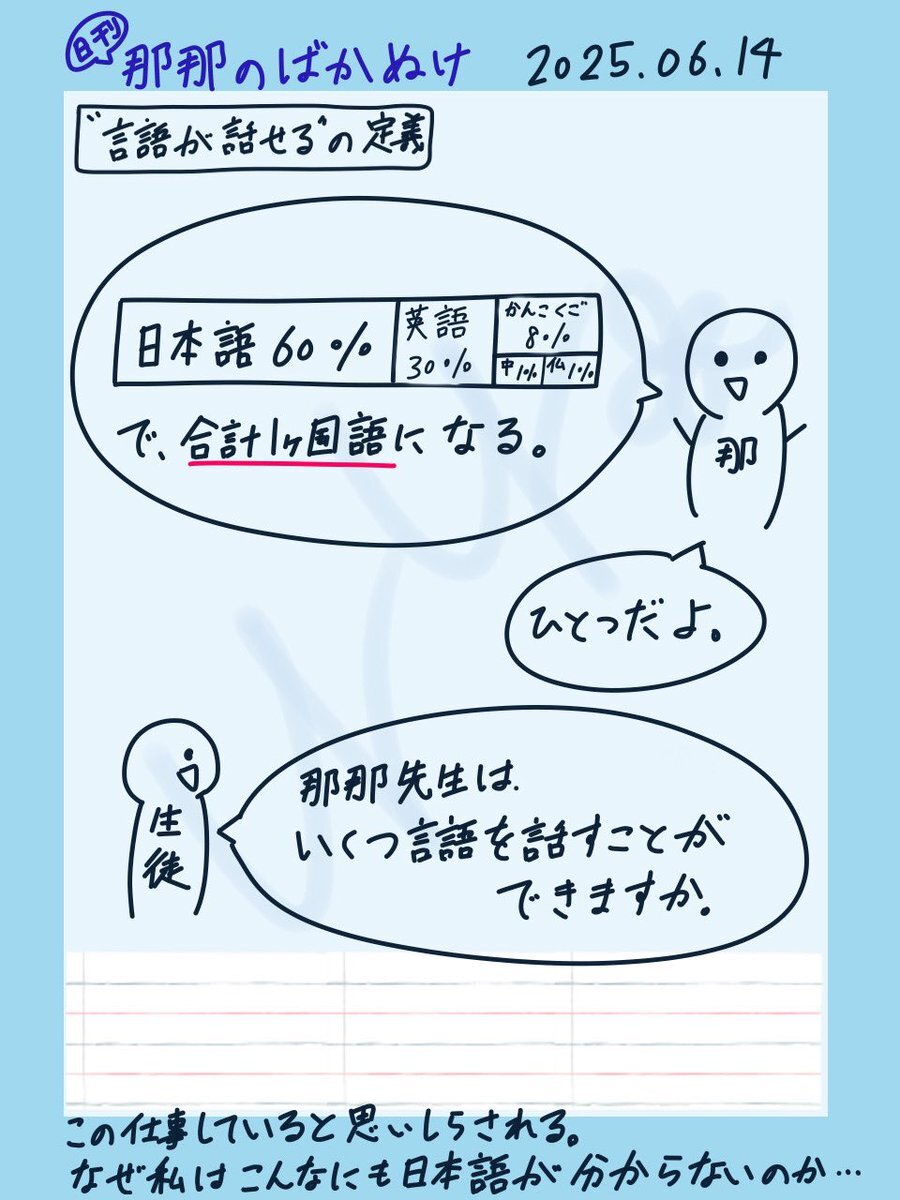 日刊 那那のばかぬけ 2025.06.14
"言語が話せる"の定義
日本語 60%
英語
30%
かんこくご
8%
中1%
仏1%
で、合計1ヶ国語になる。
那
ひとつだよ。
那那先生は、
いくつ言語を話すことが
できますか。
生徒
この仕事していると思いしらされる。
なぜ私はこんなにも日本語が分からないのか…